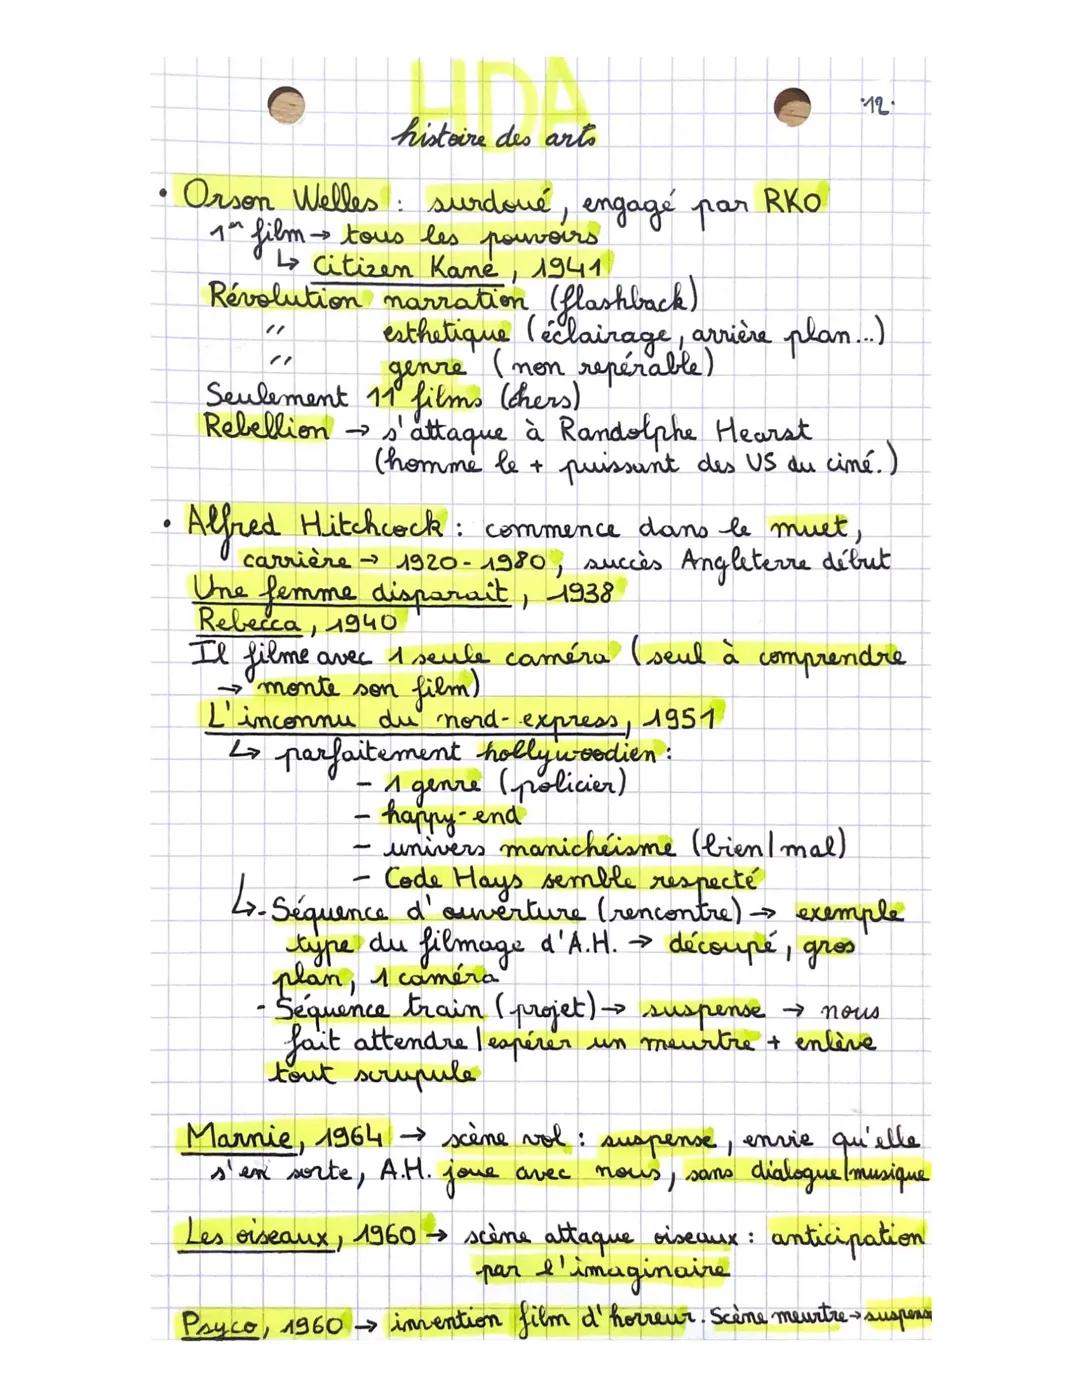 HDA
·12·
histoire des arts
• Orson Welles : surdoué, engagé par RKO
1er film → tous les pouvoirs
↳ Citizen Kane, 1941
Révolution narration (flashback)
" esthetique (éclairage, arrière plan...)
" genre (non repérable)
Seulement 11 films (chers)
Rebellion → s'attaque à Randolphe Hearst
(homme le + puissant des US du ciné.)
• Alfred Hitchcock : commence dans le muet,
carrière → 1920-1980, succès Angleterre début
Une femme disparait, 1938
Rebecca, 1940
Il filme avec 1 seule caméra (seul à comprendre
→ monte son film)
L'inconnu du nord-express, 1951
↳ parfaitement hollywoodien :
- 1 genre (policier)
- happy-end
- univers manichéisme (bien/mal)
- Code Hays semble respecté
↳ - Séquence d'ouverture (rencontre) → exemple
type du filmage d'A.H. → découpé, gros
plan, 1 caméra
- Séquence train (projet) → suspense → nous
fait attendre/espérer un meurtre + enlève
tout scrupule
Marnie, 1964 → scène vol : suspense, envie qu'elle
s'en sorte, A.H. joue avec nous, sans dialogue/musique
Les oiseaux, 1960 → scène attaque oiseaux : anticipation
par l'imaginaire
Psyco, 1960 → invention film d'horreur. Scène meurtre → suspens